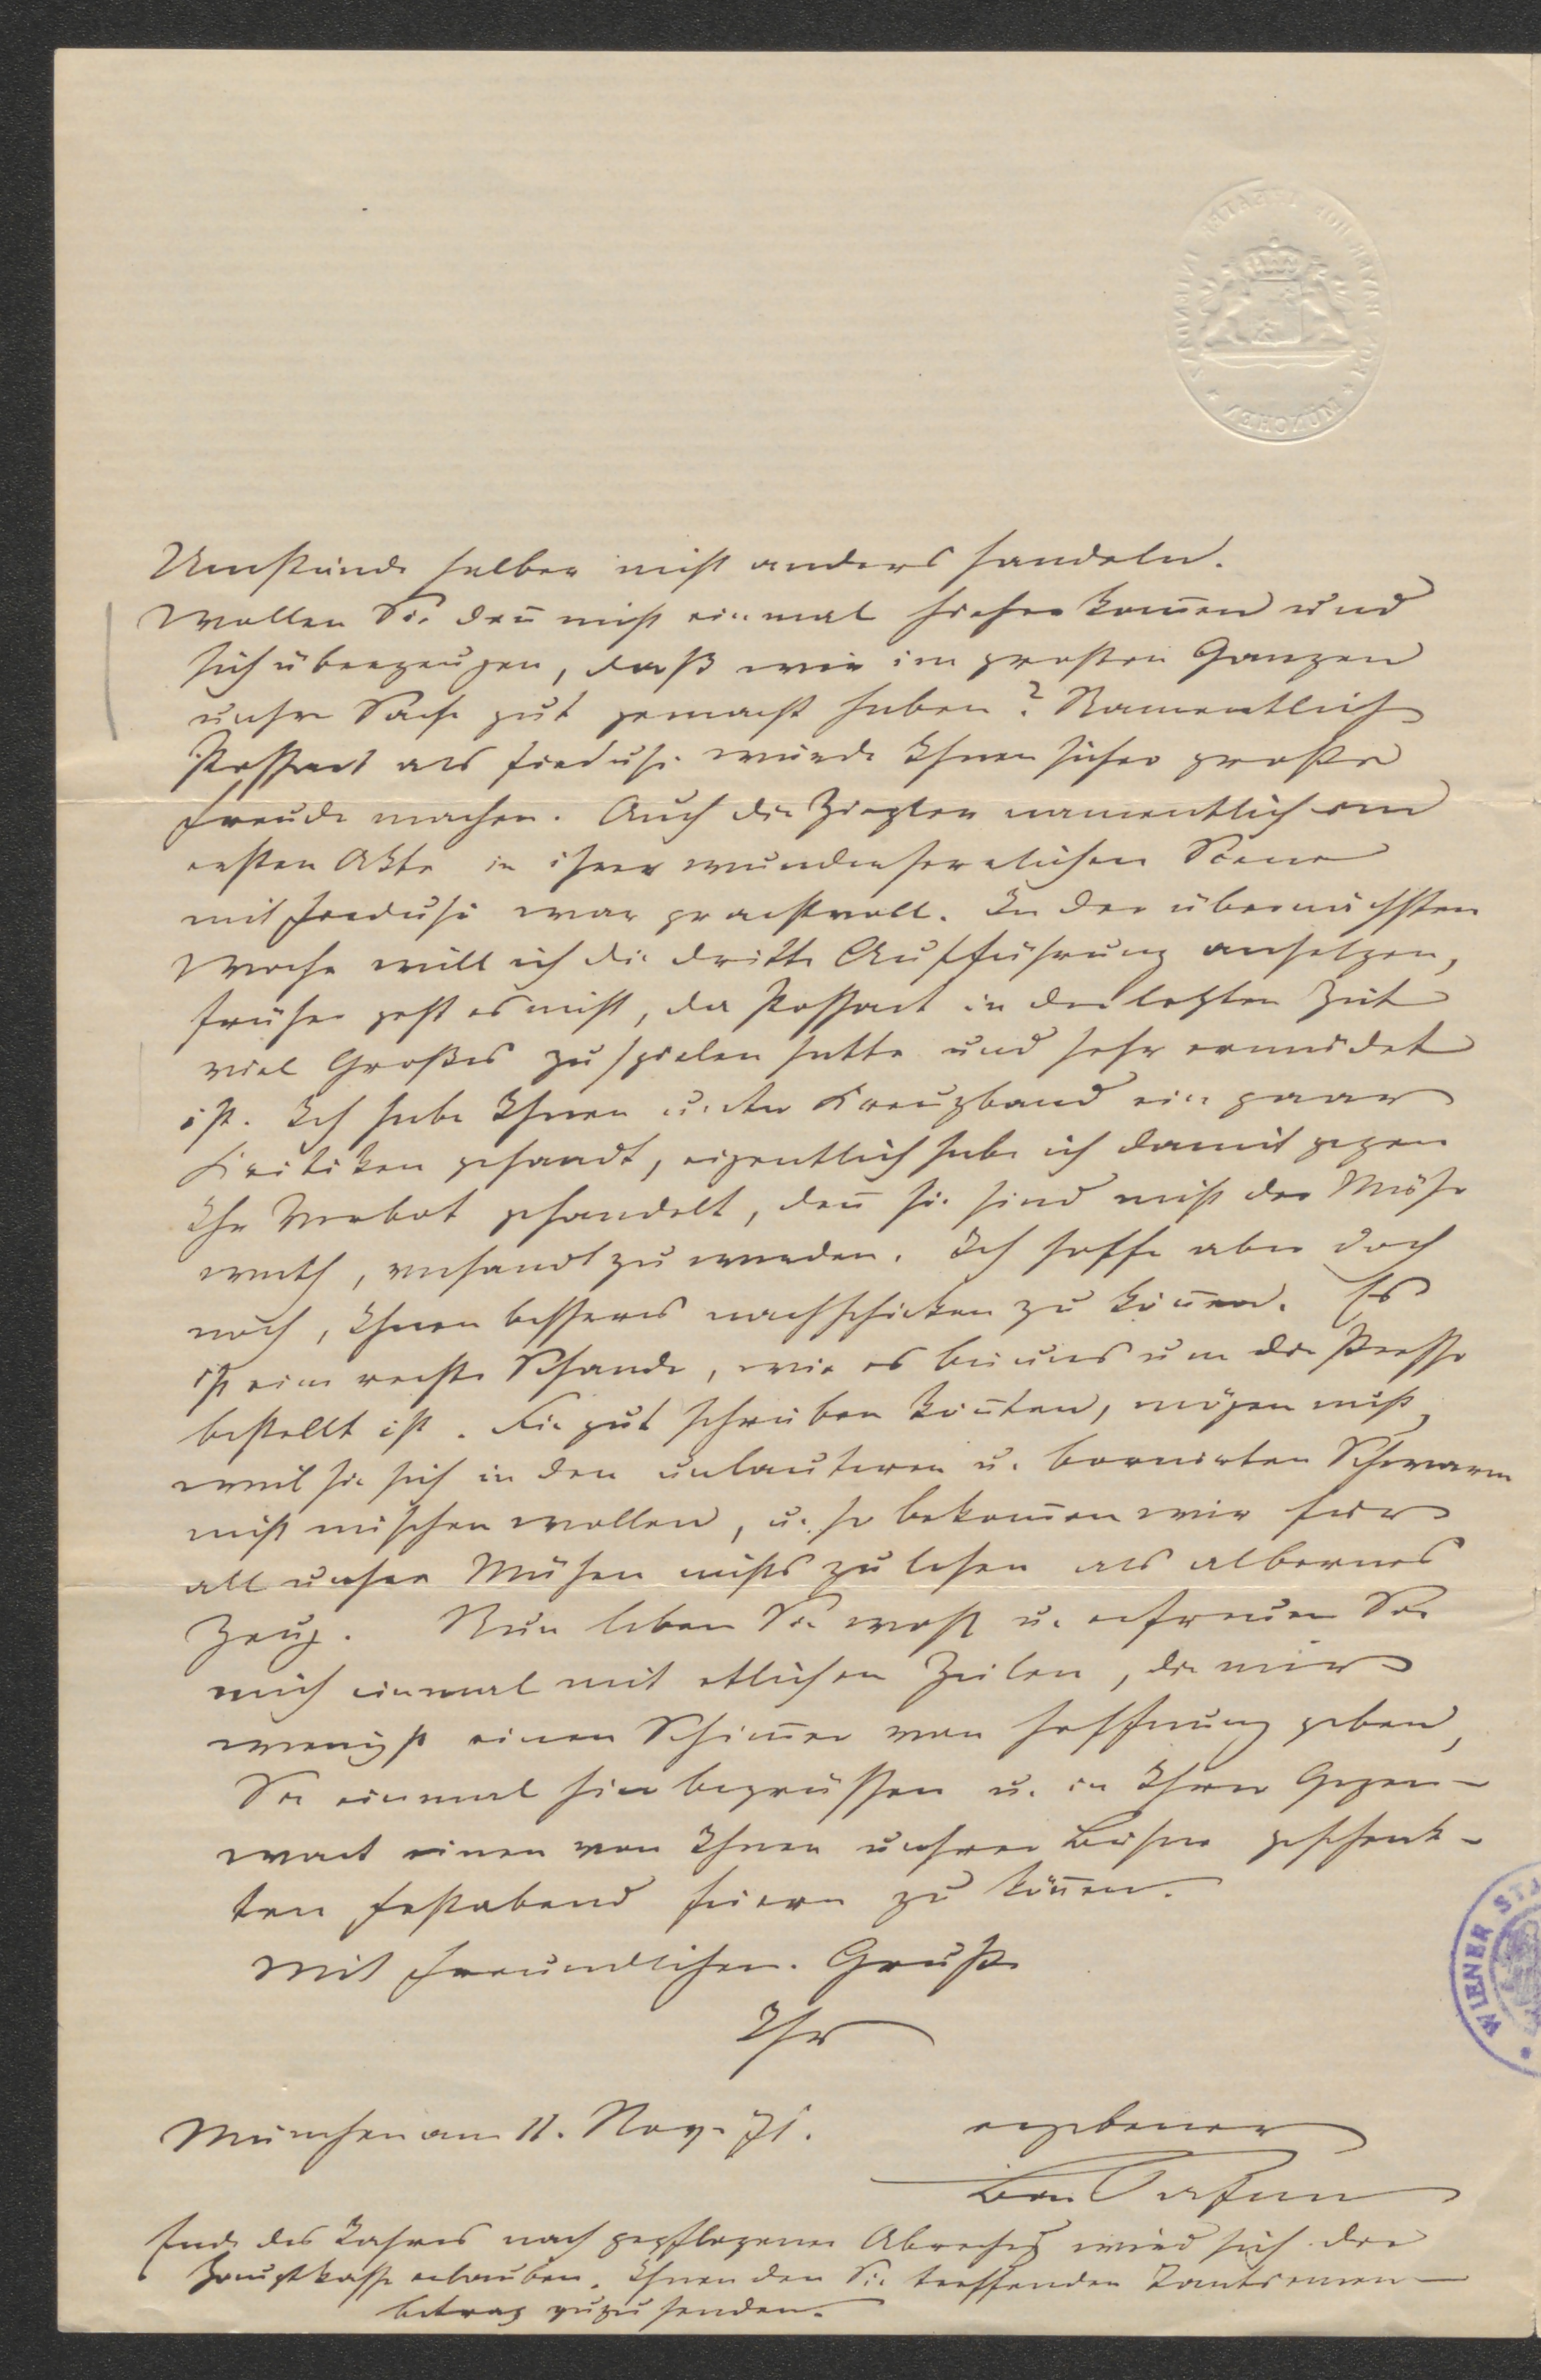 KGL. BAYER. HOF THEATER INTENDANZ
* MÜNCHEN *
Umstände halber nicht anders handeln.
Wollen Sie den̅ nicht einmal hieher kom̅en und
sich überzeugen, daß wir im großen Ganzen
unsre Sache gut gemacht haben? Namentlich
Possart als Freduhi würde Ihnen sicher große
Freude machen. Auch die Ziegler namentlich im
ersten Akte in ihrer wunderherrlichen Scene
mit Freduhi war prachtvoll. In der übernächsten
Woche will ich die dritte Aufführung ansetzen,
früher geht es nicht, da Possart in der letzten Zeit
viel Großes zu spielen hatte und sehr ermüdet
ist. Ich habe Ihnen unter Kreuzband ein paar
Kritiken gesandt, eigentlich habe ich damit gegen
Ihr Verbot gehandelt, den̅ sie sind nicht der Mühe
werth, versandt zu werden. Ich hoffe aber doch
noch, Ihnen besseres nachschicken zu kön̅en. Es
ist eine rechte Schande, wie es bei uns um die Presse
bestellt ist. Die gut schreiben kön̅ten, mögen nicht,
weil sie sich in den unlauteren u. bornirten Schwarm
nicht mischen wollen, u. so bekom̅en wir für
all unser Mühen nichts zu lesen als albernes
Zeug. Nun leben Sie wohl u. erfreuen Sie
mich einmal mit etlichen Zeilen, die mir
wenigst einen Schim̅er von Hoffnung geben,
Sie einmal hier begrüssen u. in Ihrer Gegen-
wart einen von Ihnen unsrer Bühne geschenk-
ten Festabend feiern zu kön̅en.
Mit freundlichem Gruße
Ihr
München am 11. Nov. 71.
ergebener
Bar. Perfall
Ende des Jahres nach gepflogener Abrechng wird sich die
Hauptkasse erlauben, Ihnen den Sie treffenden Tantiemen-
betrag zuzusenden.
WIENER ST